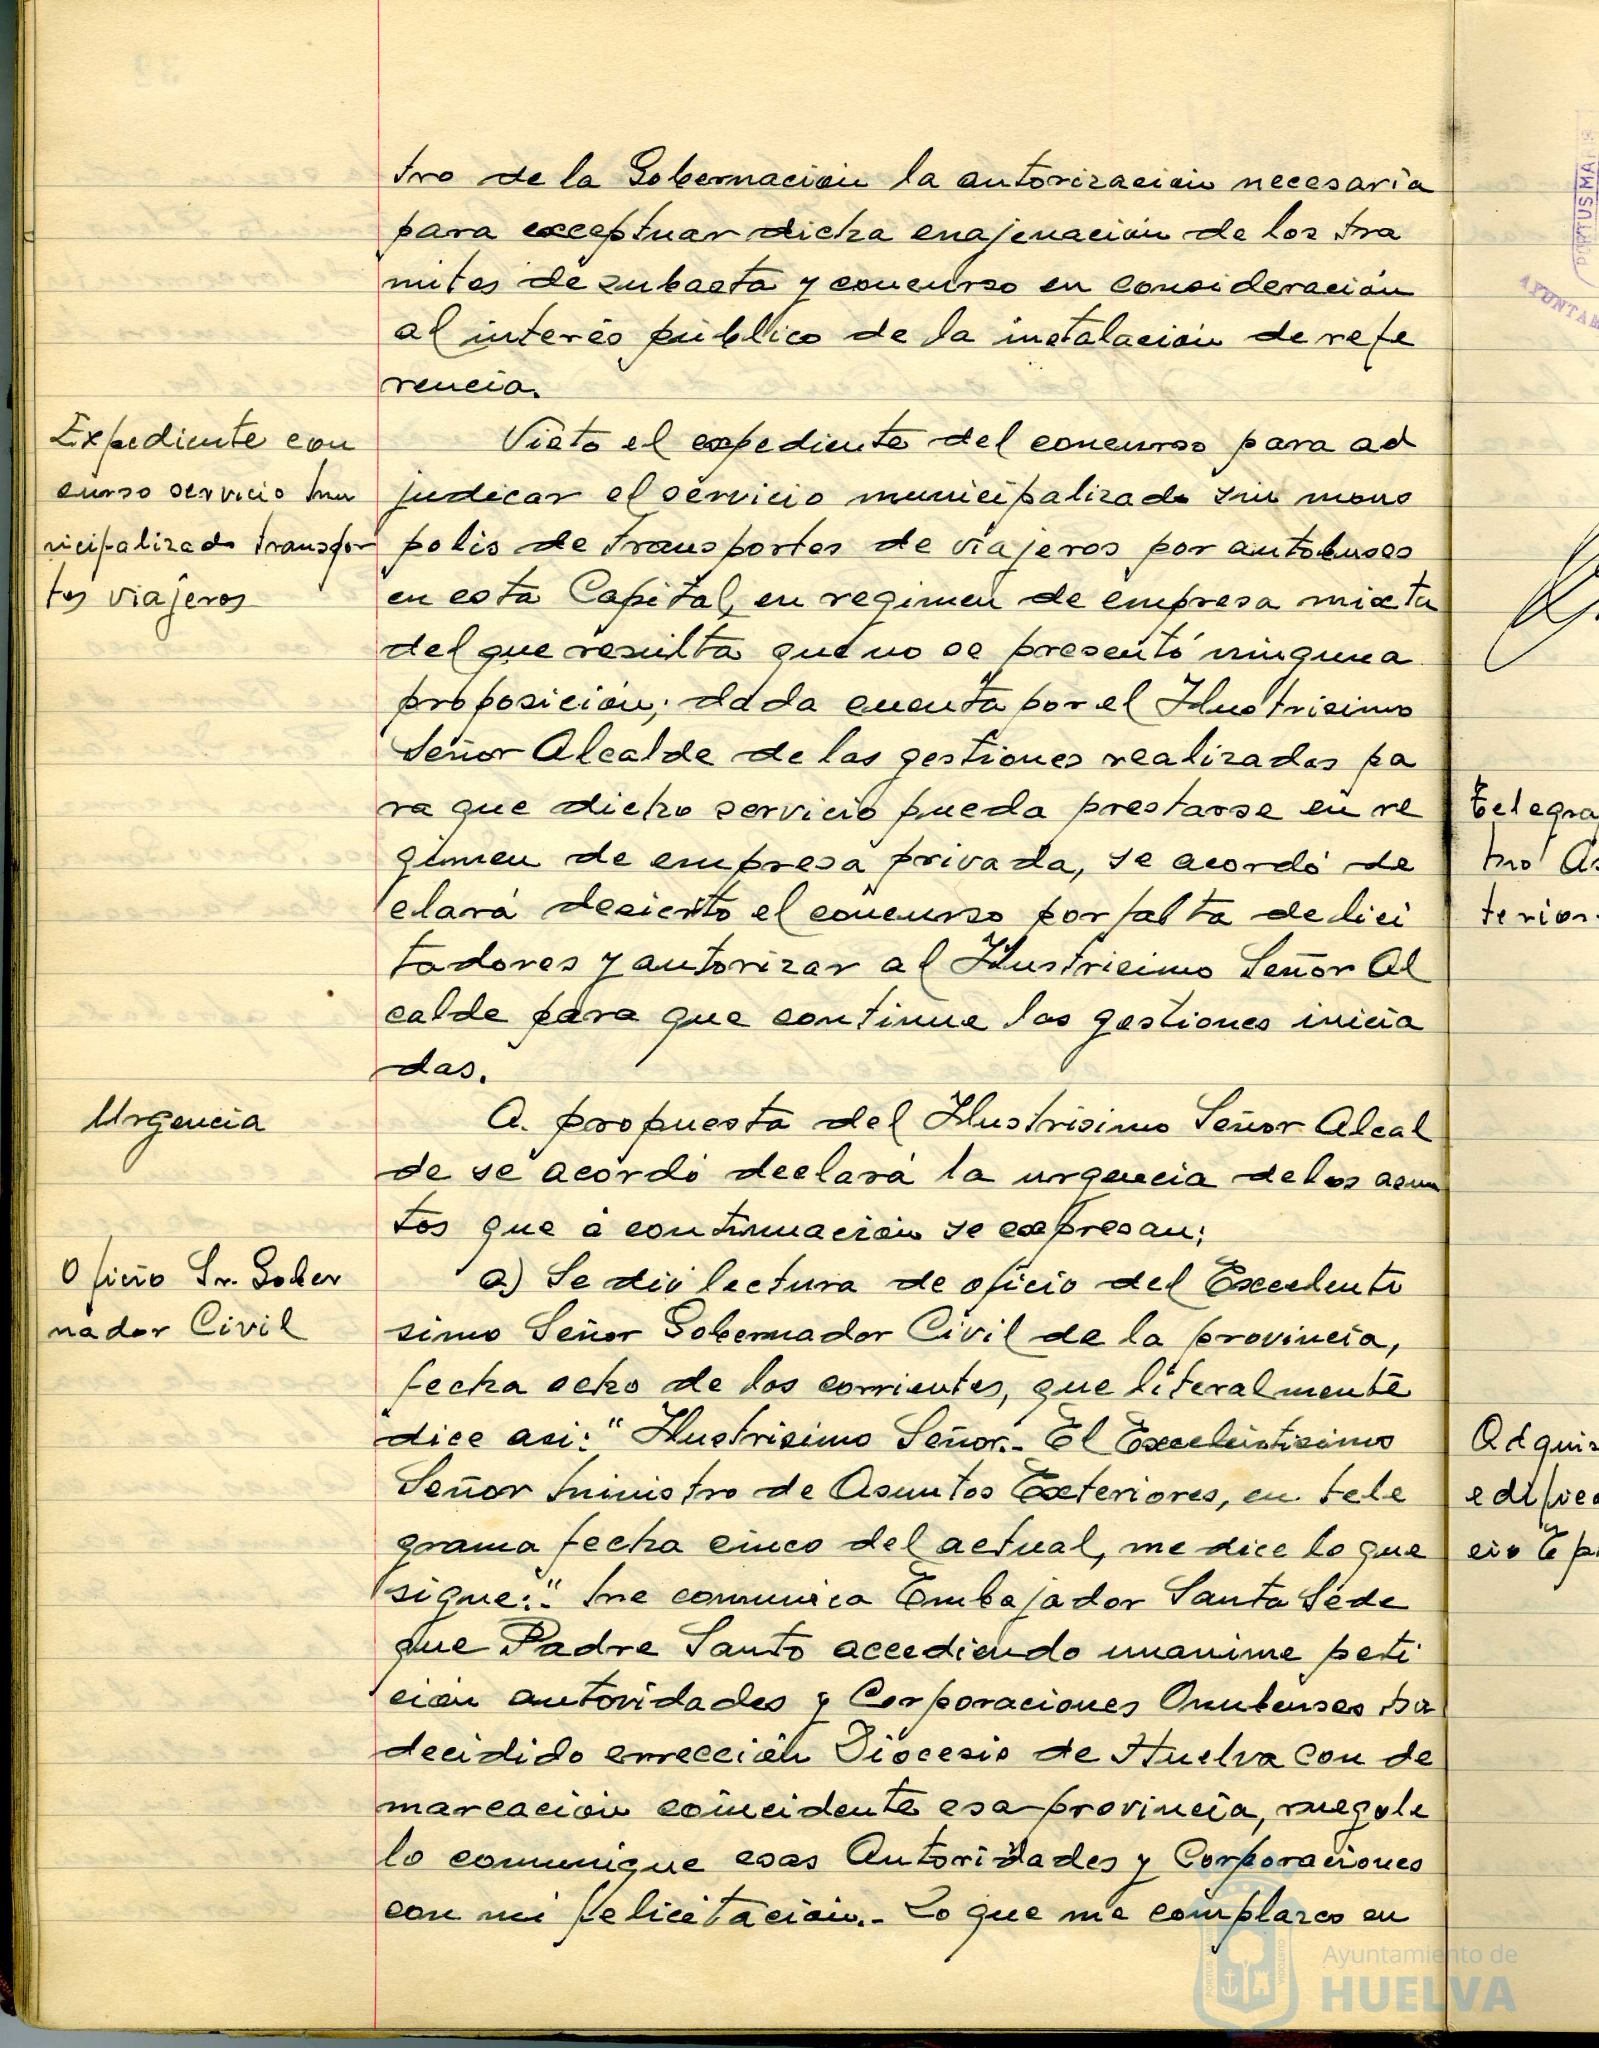 tro de la Gobernación la autorización necesaria
para exceptuar dicha enajenación de los tra
mites de subasta y concurso en consideración
al interés público de la instalación de refe
rencia.
Expediente con
curso servicio mu
nicipalizado transpor
tes viajeros
Visto el expediente del concurso para ad
judicar el servicio municipalizado sin mono
polio de transportes de viajeros por autobuses
en esta Capital, en regimen de empresa mixta
del que resulta que no se presentó ninguna
proposición; dada cuenta por el Ilustrisimo
Señor Alcalde de las gestiones realizadas pa
ra que dicho servicio pueda prestarse en re
gimen de empresa privada, se acordó de
clará desierto el concurso por falta de lici
tadores y autorizar al Ilustrisimo Señor Al
calde para que continue las gestiones inicia
das.
Urgencia
A propuesta del Ilustrisimo Señor Alcal
de se acordó declará la urgencia de los asun
tos que á continuación se expresan:
Oficio Sr. Gober
nador Civil
a) Se dió lectura de oficio del Excelenti
simo Señor Gobernador Civil de la provincia,
fecha ocho de los corrientes, que literalmente
dice asi: "Ilustrisimo Señor.- El Excelentisimo
Señor Ministro de Asuntos Exteriores, en tele
grama fecha cinco del actual, me dice lo que
sigue:" Me comunica Embajador Santa Sede
que Padre Santo accediendo unanime peti
ción autoridades y Corporaciones Onubenses ha
decidido erección Diocesis de Huelva con de
marcación coincidente esa provincia, ruegole
lo comunique esas Autoridades y Corporaciones
con mi felicitación.- Lo que me complazco en
PORTUS MA
AYUNTAM
Telegra
mo As
terior
Adquis
edifico
cio Te pr
Ayuntamiento de
HUELVA